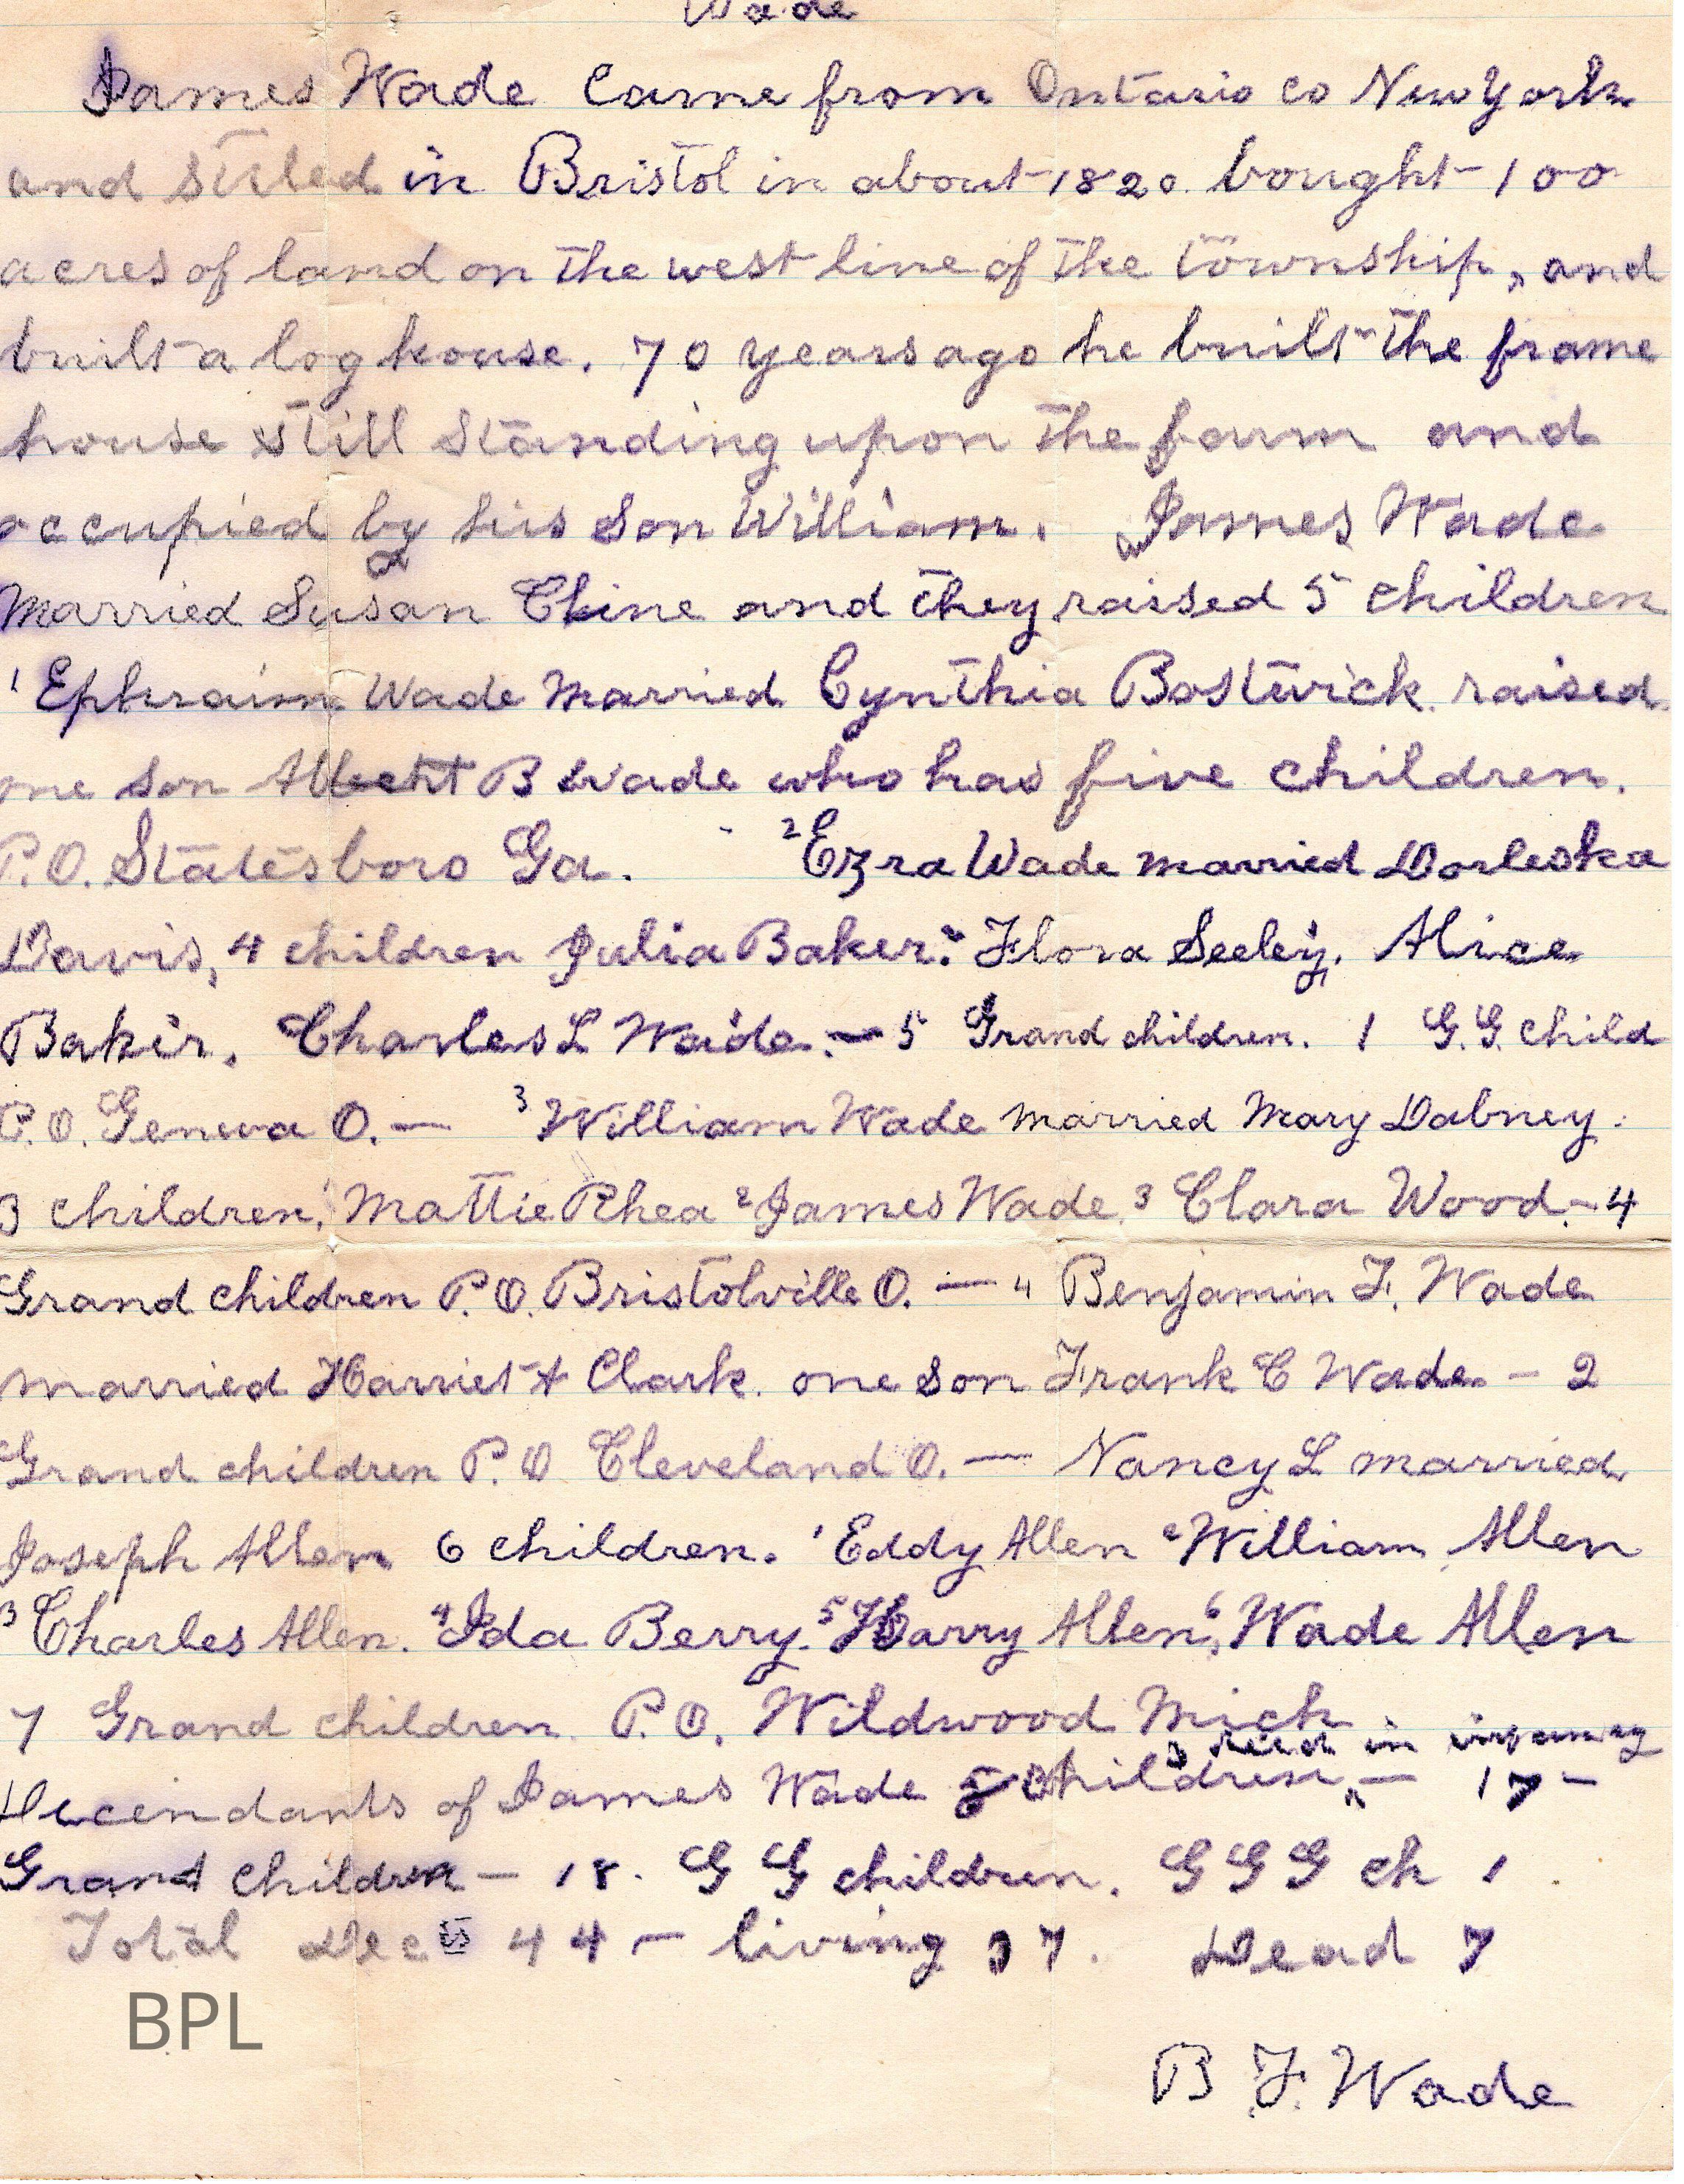 Wade
James Wade Came from Ontario co New York
and setled in Bristol in about 1820. bought 100
acres of land on the west line of the township, and
built a log house. 70 years ago he built the frame
house still standing upon the farm and
occupied by his son William. James Wade
Married Susan Cline and they raised 5 children
1 Ephraim Wade Married Cynthia Bostwick. raised
one son Albert B Wade who has five children.
P.O. Statesboro Ga. 2 Ezra Wade married Dorleska
Davis, 4 children Julia Baker. Flora Seeley. Alice
Baker. Charles L Wade. — 5 Grand children. 1 G.G. Child
P.O. Geneva O. — 3 William Wade married Mary Dabney.
3 children, 1 Mattie Rhea 2 James Wade 3 Clara Wood. - 4
Grand children P.O. Bristolville O. — 4 Benjamin F. Wade
married Harriet A Clark. one son Frank C Wade - 2
Grand children P.O Cleveland O. — Nancy L married
Joseph Allen 6 children. 1 Eddy Allen 2 William Allen
3 Charles Allen. 4 Ida Berry. 5 Harry Allen, 6 Wade Allen
7 Grand children P.O. Wildwood Mich
3 died in
Decendants of James Wade children, — 17 -
Grand Children - 18. G G children. G G G ch 1
Total Dec 44 - living 37. Dead 7
BPL
B F. Wade